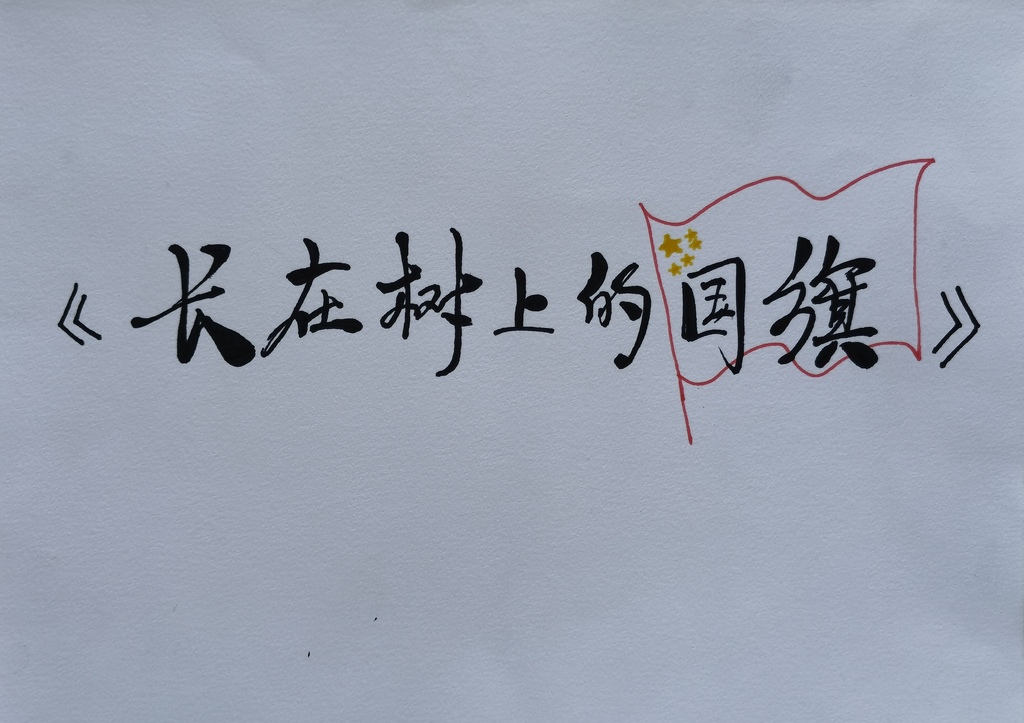 《长在树上的国旗》